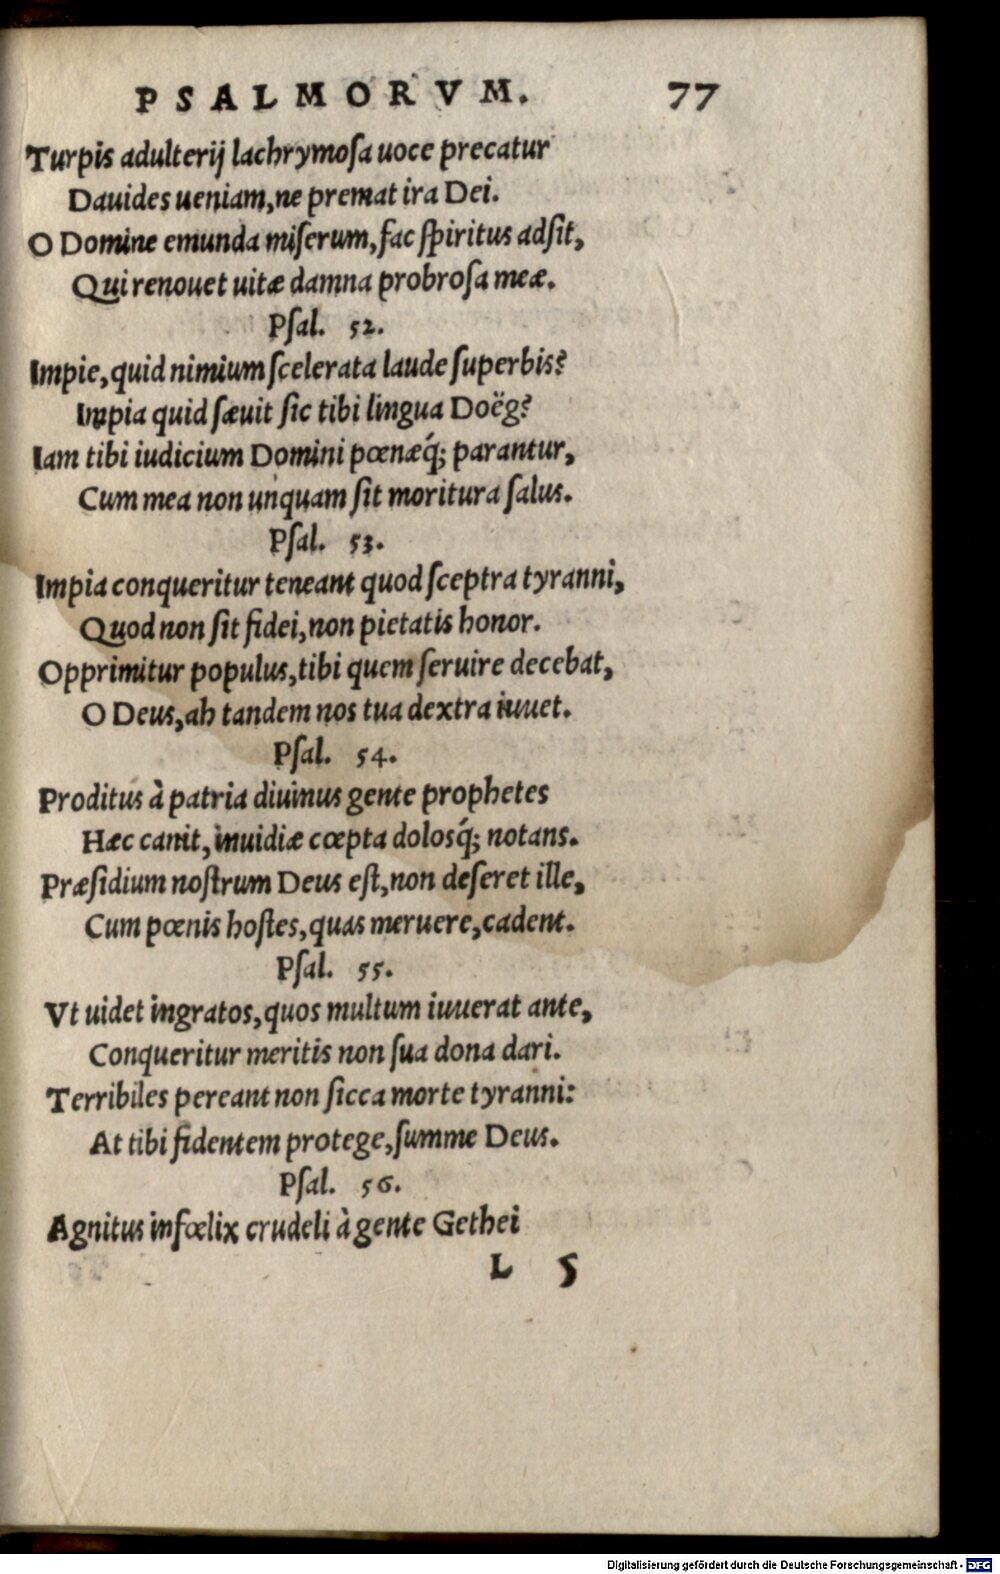 PSALMORVM. 77
Turpis adulterij lachrymoſa uoce precatur
Dauides ueniam, ne premat ira Dei.
O Domine emunda miſerum, fac ſpiritus adſit,
Qui renouet uitæ damna probroſa meæ.
Pſal. 52.
Impie, quid nimium ſcelerata laude ſuperbis?
Impia quid ſæuit ſic tibi lingua Doëg?
Iam tibi iudicium Domini pœnæq́; parantur,
Cum mea non unquam ſit moritura ſalus.
Pſal. 53.
Impia conqueritur teneant quod ſceptra tyranni,
Quod non ſit fidei, non pietatis honor.
Opprimitur populus, tibi quem ſeruire decebat,
O Deus, ah tandem nos tua dextra iuuet.
Pſal. 54.
Proditus à patria diuinus gente prophetes
Hæc canit, inuidiæ cœpta dolosq́; notans.
Præſidium noſtrum Deus eſt, non deſeret ille,
Cum pœnis hoſtes, quas meruere, cadent.
Pſal. 55.
Vt uidet ingratos, quos multum iuuerat ante,
Conqueritur meritis non ſua dona dari.
Terribiles pereant non ſicca morte tyranni:
At tibi fidentem protege, ſumme Deus.
Pſal. 56.
Agnitus infœlix crudeli à gente Gethei
L 5
Digitalisierung gefördert durch die Deutsche Forschungsgemeinschaft - DFG